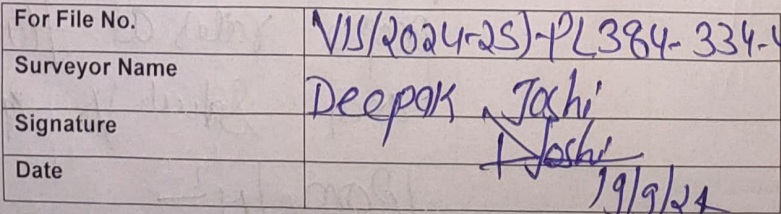 For File No. VIS(2024-25)-PL384-334-4
Surveyor Name Deepak Joshi
Signature Joshi
Date 19/9/24